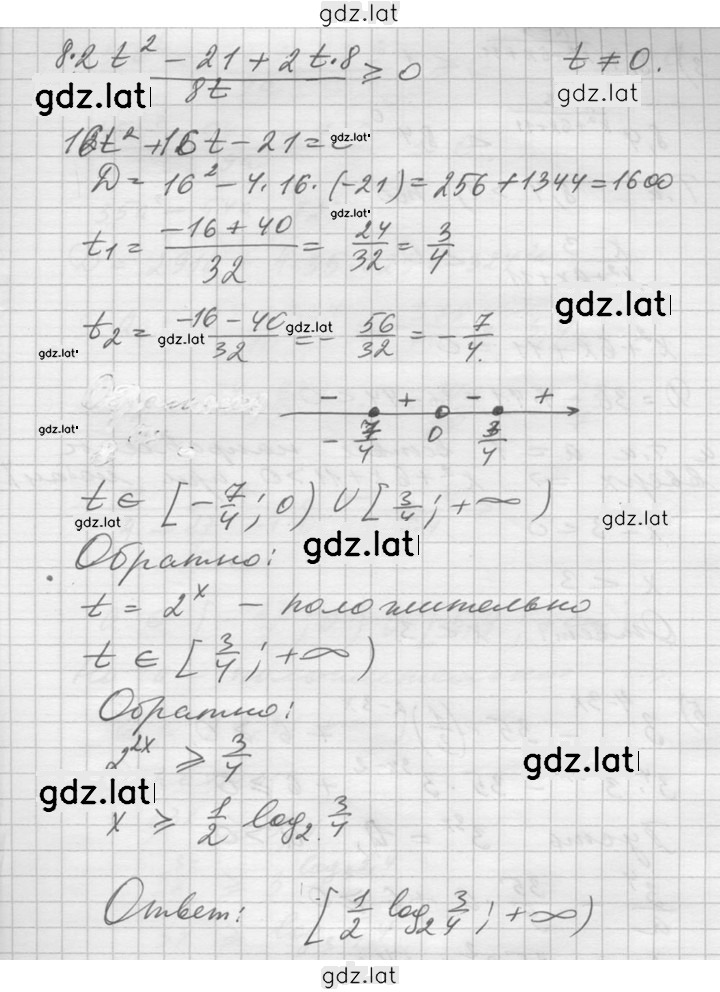 gdz.lat
8·2t² - 21 + 2t·8 / 8t ≥ 0    t ≠ 0.
gdz.lat gdz.lat
16t² + 16t - 21 =
gdz.lat
D = 16² - 4·16·(-21) = 256 + 1344 = 1600
gdz.lat
t₁ = (-16 + 40)/32 = 24/32 = 3/4
gdz.lat
t₂ = (-16 - 40)/32 = - 56/32 = - 7/4.
gdz.lat gdz.lat gdz.lat
- + - +
gdz.lat
- 7/4 0 3/4
t ∈ [-7/4; 0) ∪ [3/4; +∞)
gdz.lat gdz.lat
Обратно: gdz.lat
t = 2ˣ - положительно
t ∈ [3/4; +∞)
Обратно:
2²ˣ ≥ 3/4
gdz.lat
gdz.lat
x ≥ 1/2 log₂ 3/4
Ответ: [1/2 log₂ 3/4; +∞)
gdz.lat